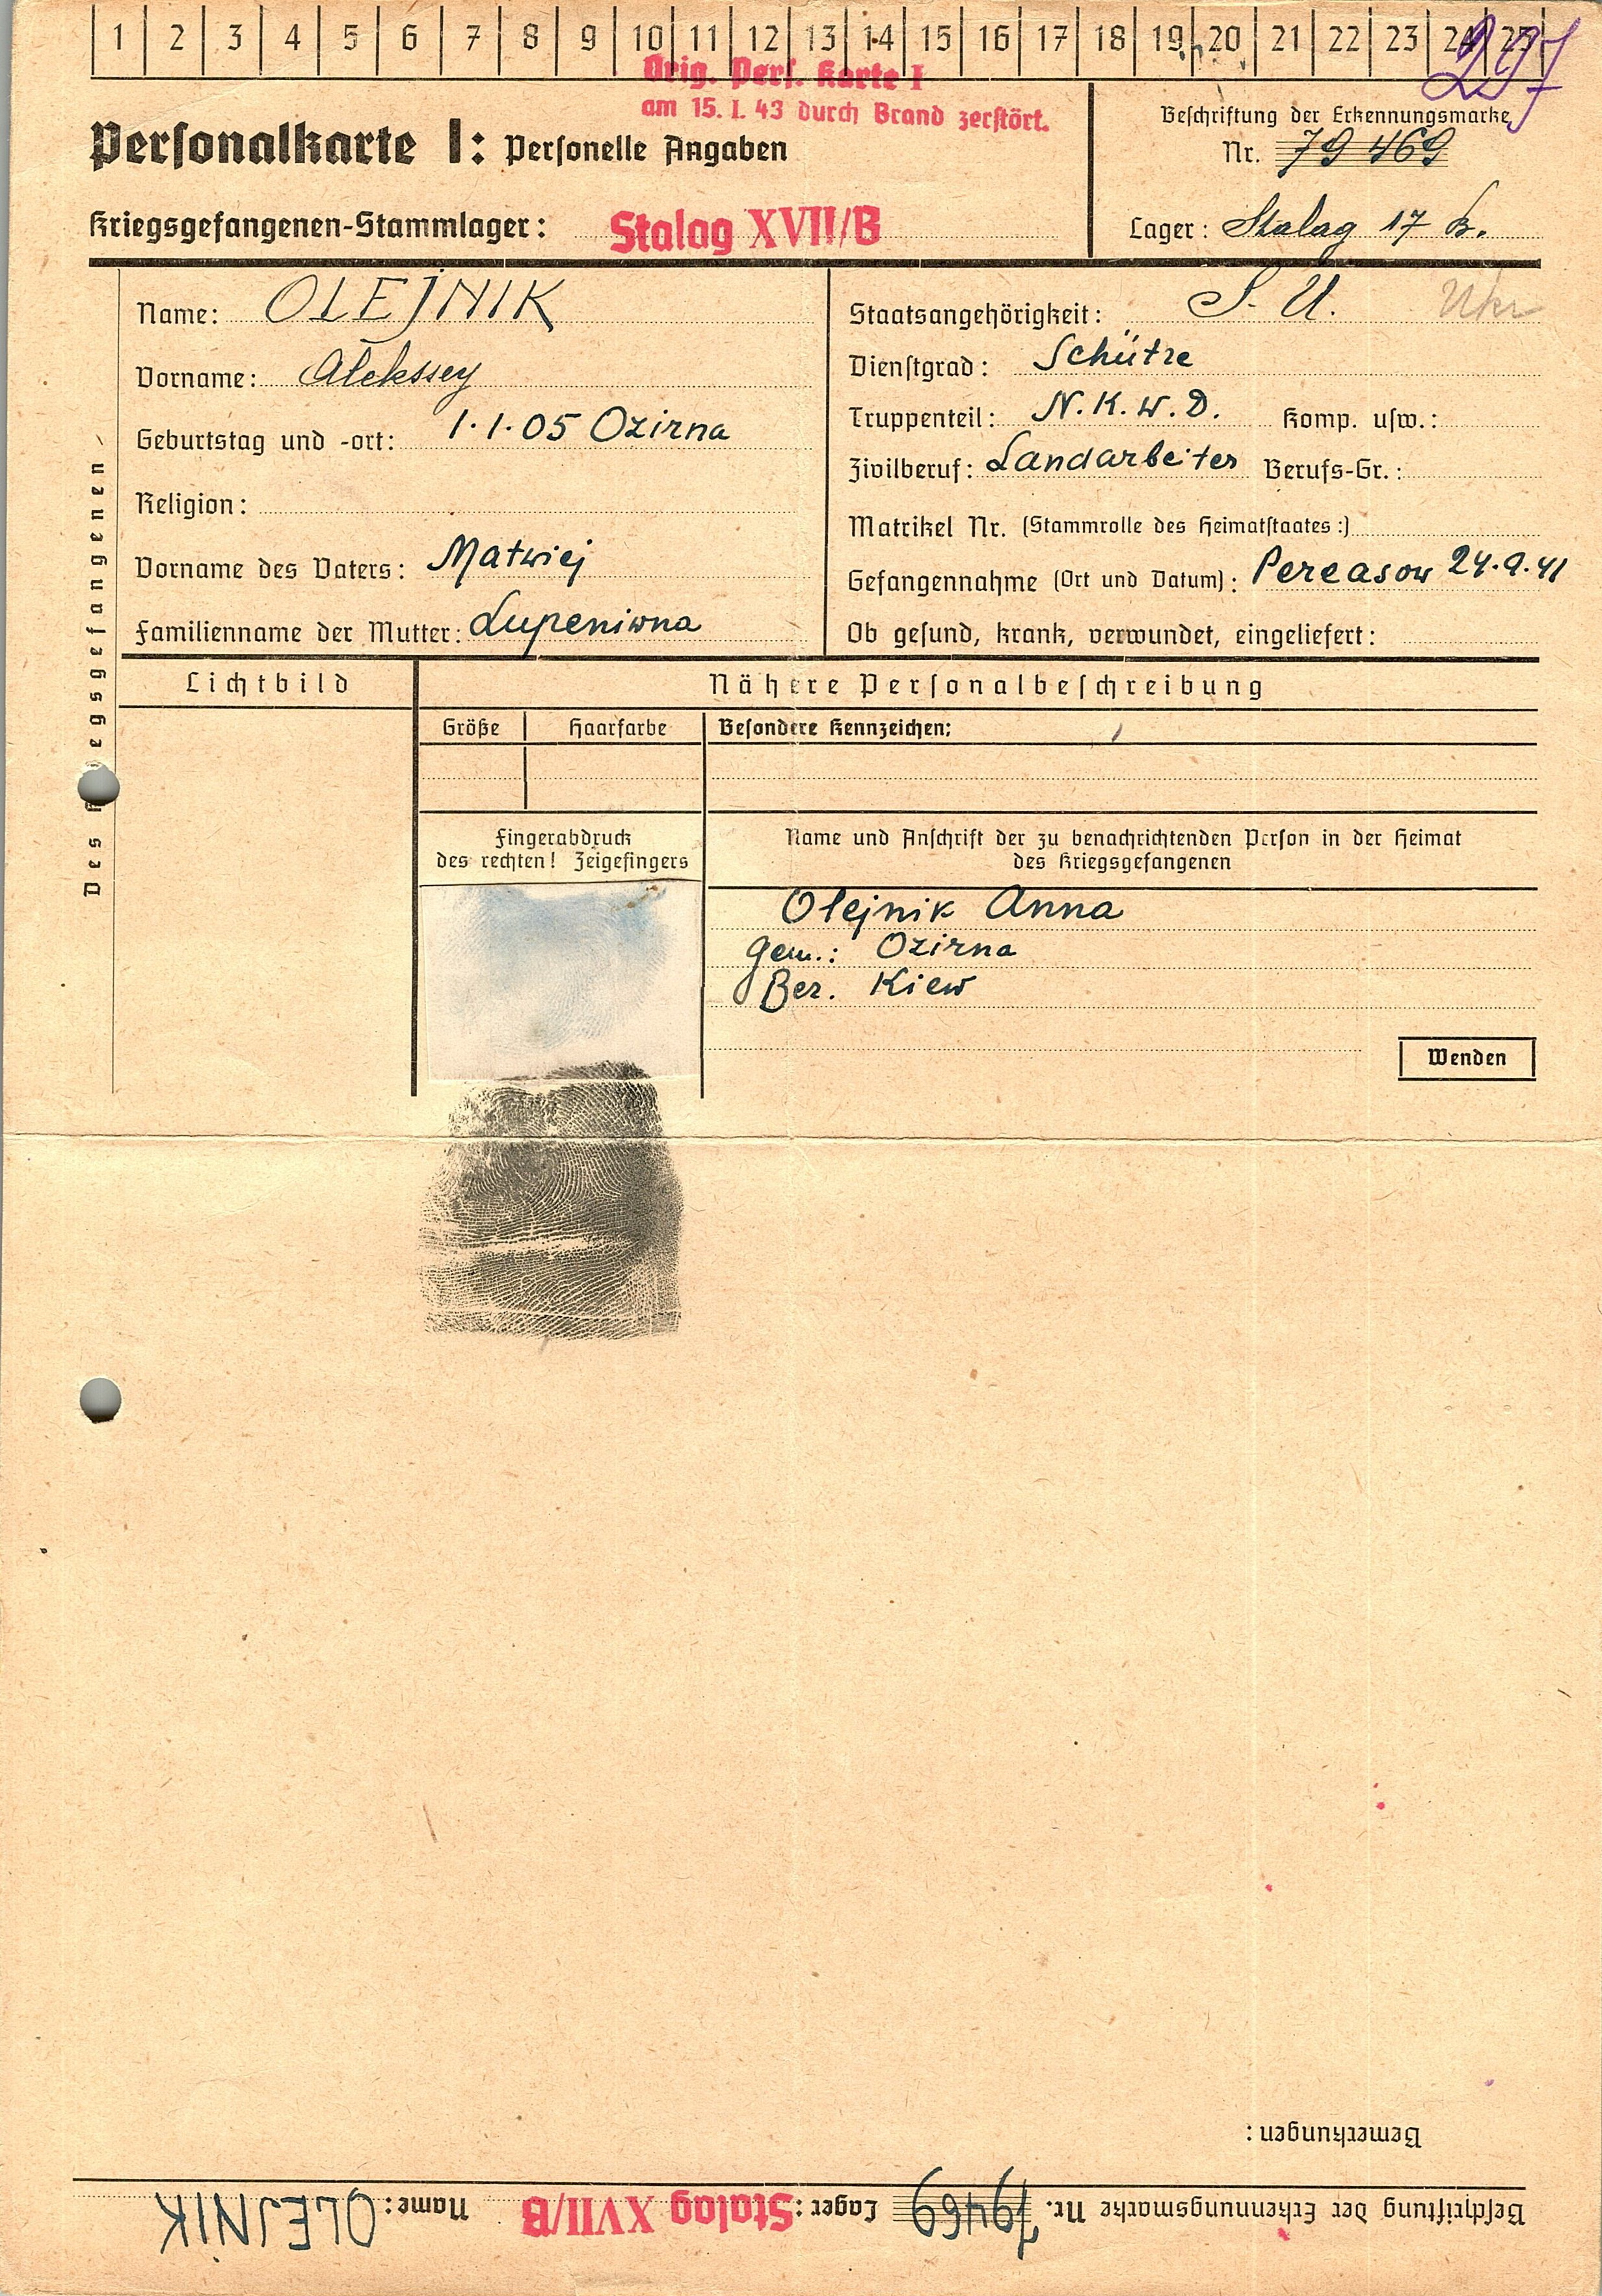 1 2 3 4 5 6 7 8 9 10 11 12 13 14 15 16 17 18 19 20 21 22 23 24 25
297
Orig. Pers. Karte I
am 15. I. 43 durch Brand zerstört.
Personalkarte I: Personelle Angaben
Beschriftung der Erkennungsmarke
Nr. 79469
Kriegsgefangenen-Stammlager: Stalag XVII/B
Lager: Stalag 17 B.
Des Kriegsgefangenen
Name: OLEJNIK
Vorname: Alekssey
Geburtstag und -ort: 1.1.05 Ozirna
Religion:
Vorname des Vaters: Matwiej
Familienname der Mutter: Lupeniwna
Staatsangehörigkeit: S. U. Ukr
Dienstgrad: Schütze
Truppenteil: N.K.W.D. Komp. usw.:
Zivilberuf: Landarbeiter Berufs-Gr.:
Matrikel Nr. (Stammrolle des Heimatstaates:)
Gefangennahme (Ort und Datum): Pereasow 24.9.41
Ob gesund, krank, verwundet, eingeliefert:
Lichtbild
Nähere Personalbeschreibung
Größe Haarfarbe Besondere Kennzeichen:
Fingerabdruck
des rechten! Zeigefingers
Name und Anschrift der zu benachrichtenden Person in der Heimat
des Kriegsgefangenen
Olejnik Anna
Gem.: Ozirna
Bez. Kiew
Wenden
Bemerkungen:
Beschriftung der Erkennungsmarke Nr. 79469 Lager: Stalag XVII/B Name: OLEJNIK